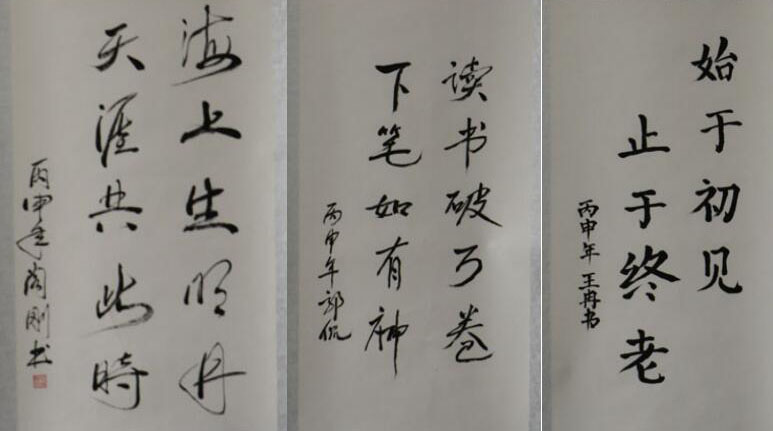 海上生明月
天涯共此時
丙申年刚书
读书破万卷
下笔如有神
丙申年郭侃
始于初见
止于终老
丙申年王冉书